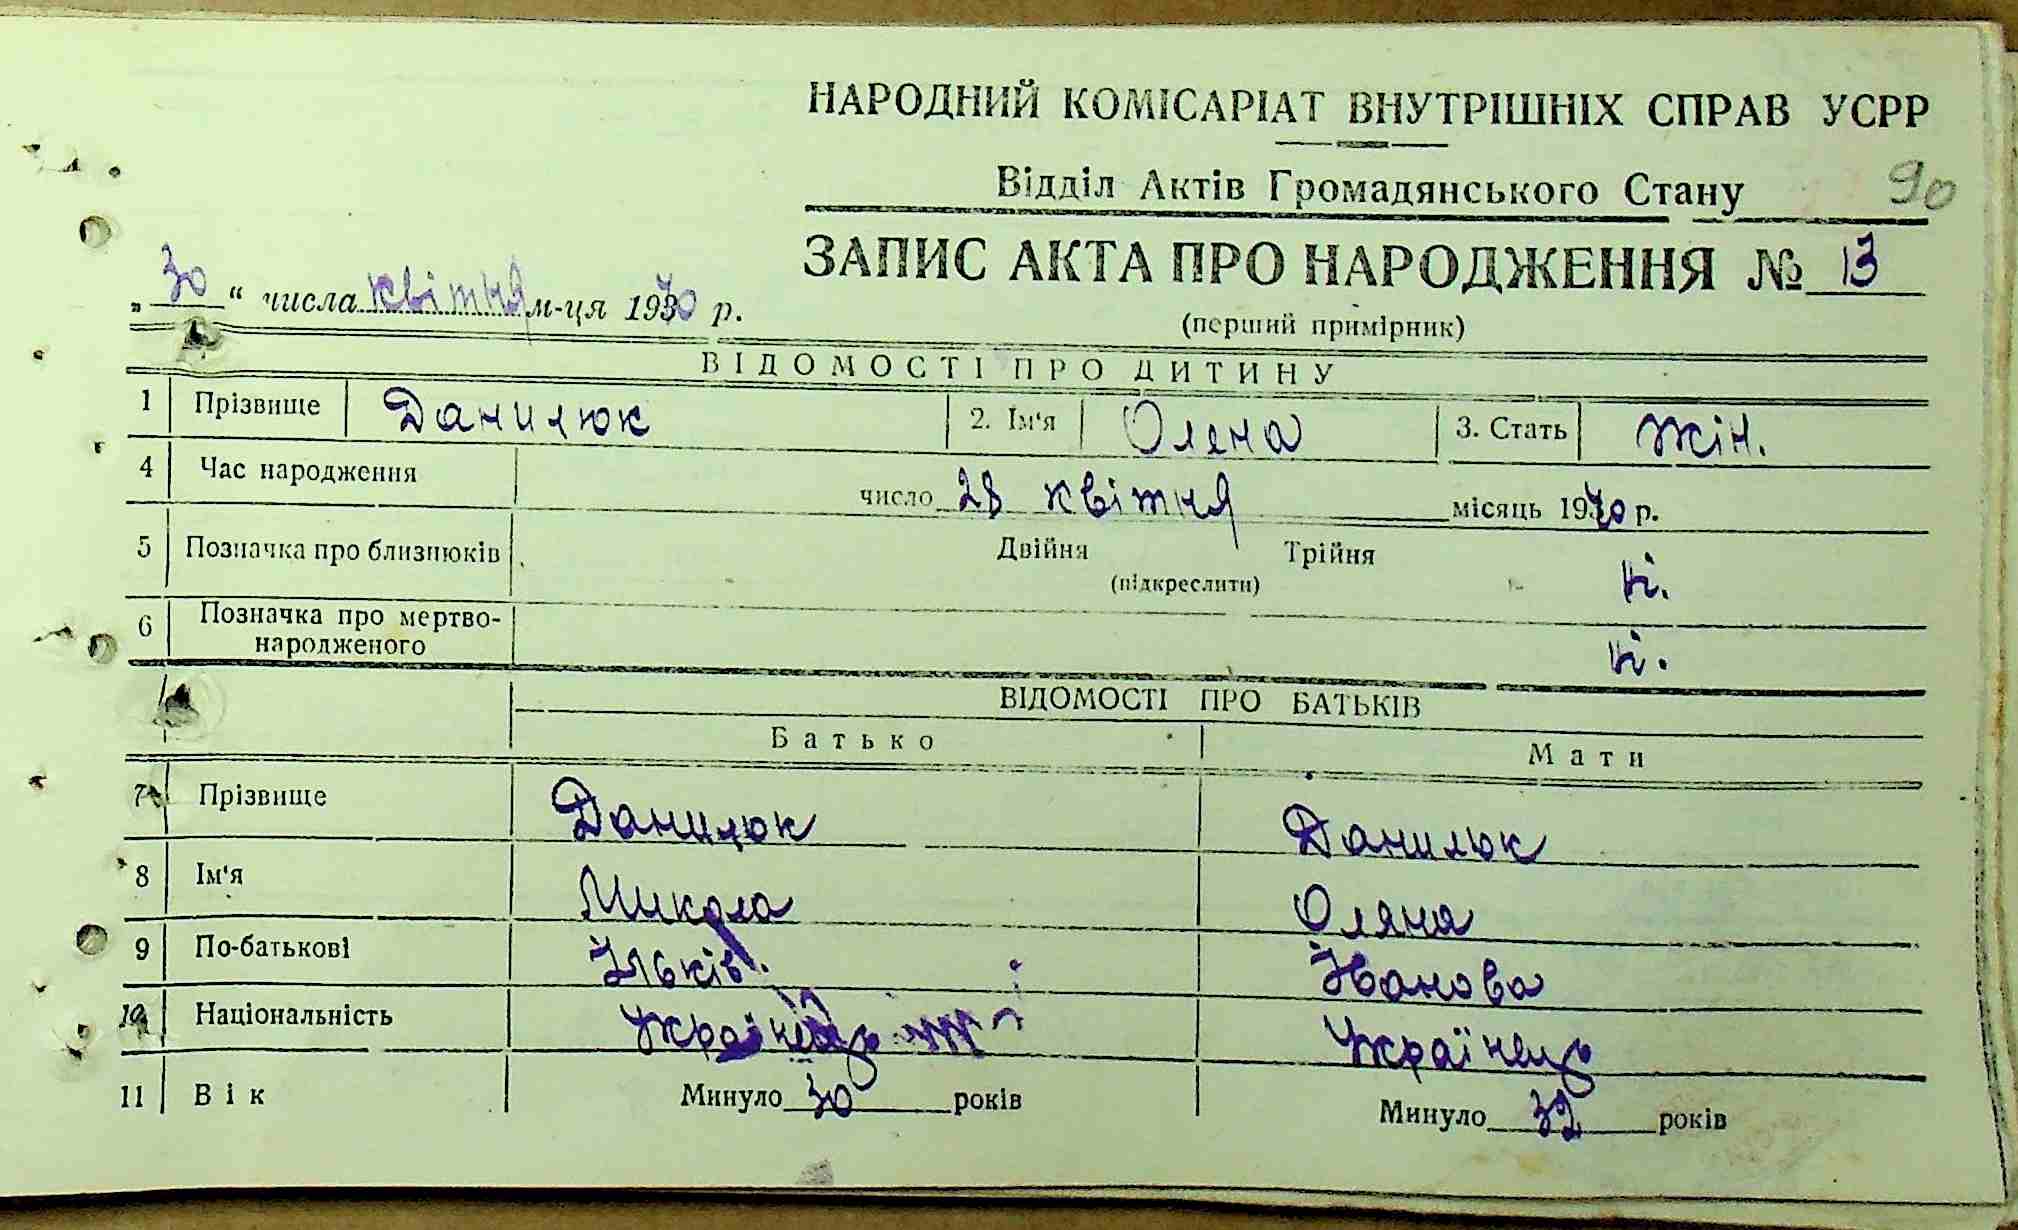 НАРОДНИЙ КОМІСАРІАТ ВНУТРІШНІХ СПРАВ УСРР
Відділ Актів Громадянського Стану 90
ЗАПИС АКТА ПРО НАРОДЖЕННЯ № 13
„30“ числа квітня м-ця 1930 р.
(перший примірник)
ВІДОМОСТІ ПРО ДИТИНУ
1 Прізвище Данилюк 2. Ім'я Олена 3. Стать жін.
4 Час народження число 28 квітня місяць 1930 р.
5 Позначка про близнюків Двійня Трійня ні.
(підкреслити)
6 Позначка про мертво-
народженого ні.
ВІДОМОСТІ ПРО БАТЬКІВ
Батько Мати
7 Прізвище Данилюк Данилюк
8 Ім'я Микола Оляна
9 По-батькові Ільків Іванова
10 Національність Українець Українець
11 Вік Минуло 30 років Минуло 32 років